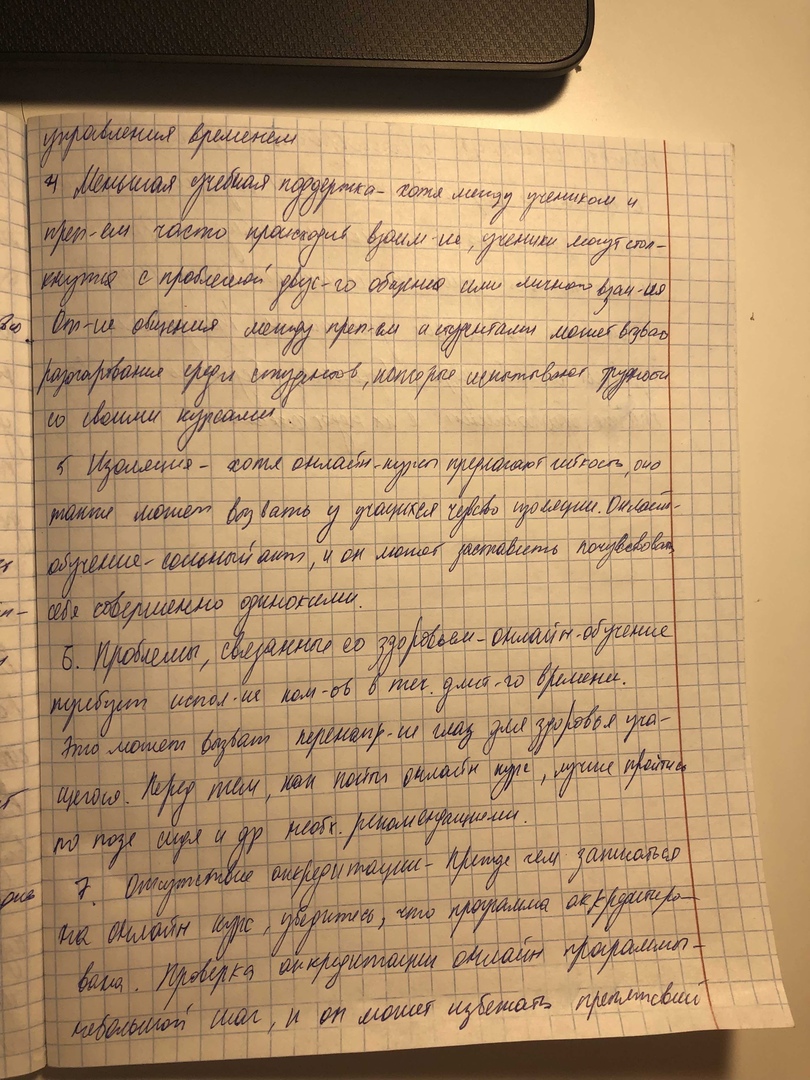 управления временем
4 Меньшая учебная поддержка - хотя между учеником и
преп-ем часто происходив взаим-ие, ученики могут стол-
кнутся с проблемой двус-го общения или личного взаи-ия
От-ие общения между преп-ем и студентами может вызвать
разочарование среди студентов, которые испытывают трудности
со своими курсами.
5 Изоляция - хотя онлайн-курсы предлагают гибкость, оно
также может вызвать у учащихся чувство изоляции. Онлайн-
обучение - сольный акт, и он может заставить почувствовать
себя совершенно одинокими.
6. Проблемы, связанные со здоровьем - онлайн-обучение
требует испол-ие ком-ов в теч. длит-го времени.
Это может вызвать перенапр-ие глаз для здоровья уча-
щегося. Перед тем, как пойти онлайн курс, лучше пройтись
по позе сидя и др необх. рекомендациями.
7. Отсутствие аккредитации - Прежде чем записаться
на онлайн курс, убедитесь, что программа аккредитиро-
вана. Проверка аккредитации онлайн программы -
небольшой шаг, и он может избежать препятствий